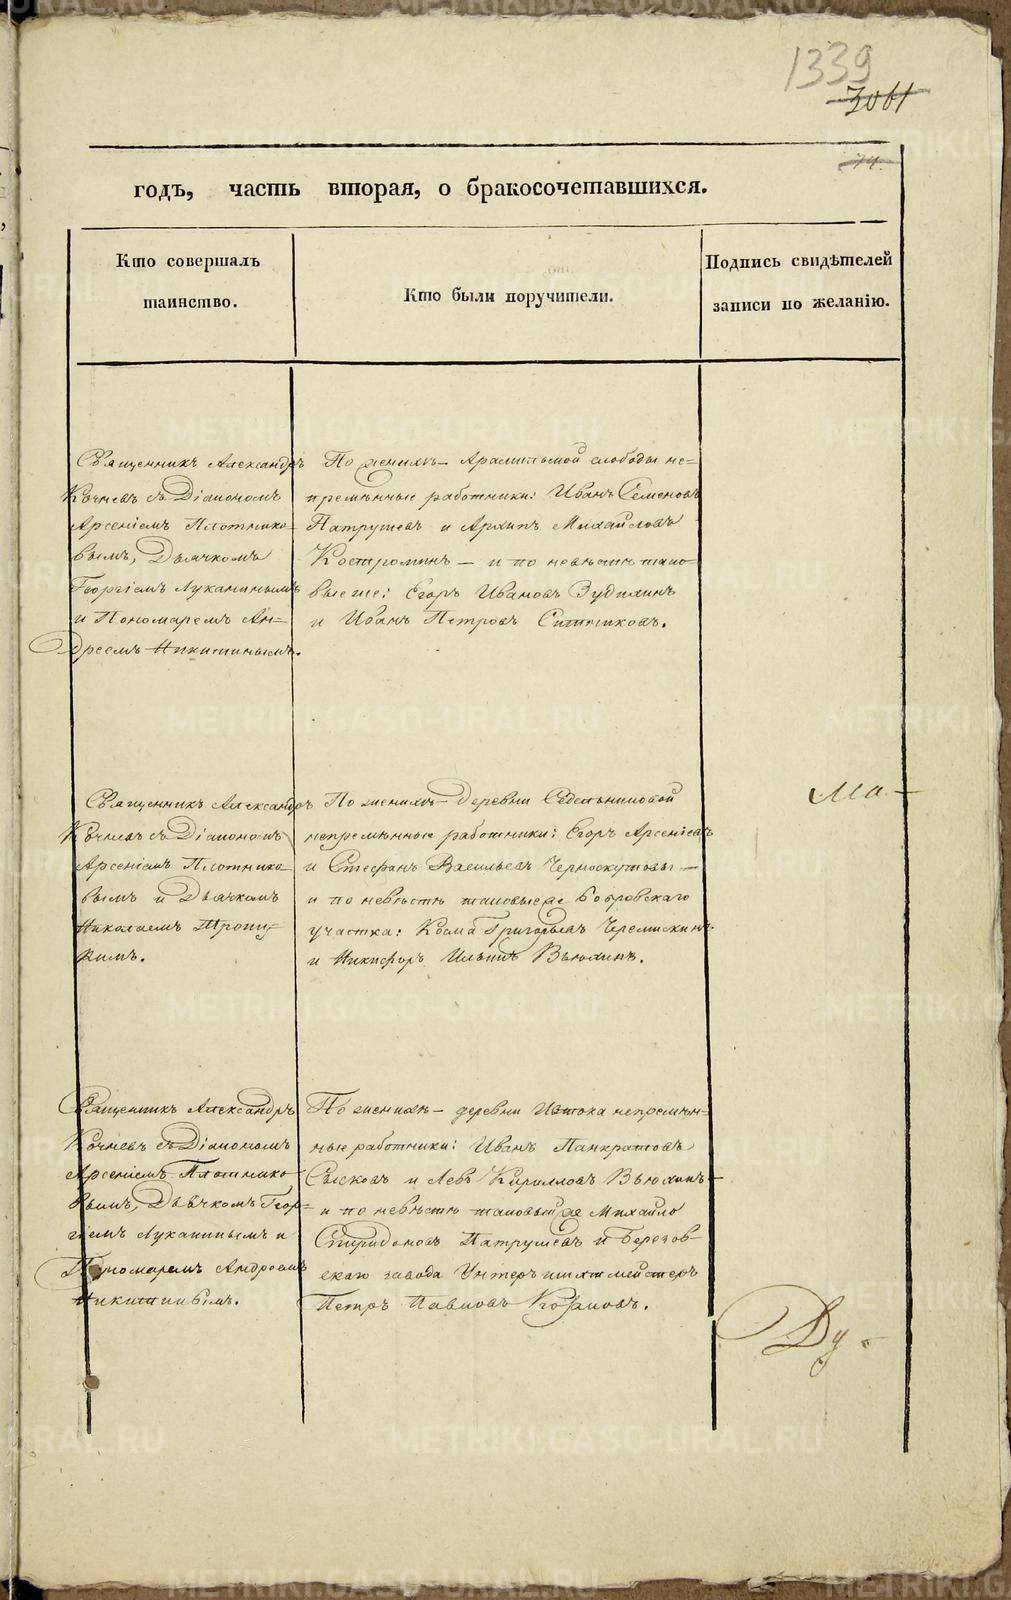 1339
3061
74.
годъ, часть вторая, о бракосочетавшихся.
Кто совершалъ
таинство.
Кто были поручители.
Подпись свидѣтелей
записи по желанію.
Священникъ Александръ
Кочневъ съ Діакономъ
Арсеніемъ Плотнико-
вымъ, Дьячкомъ
Георгіемъ Луканинымъ
и Пономаремъ Ан-
дреемъ Никитинымъ.
По женихѣ – Арамильской слободы не-
премѣнные работники: Иванъ Семеновъ
Патрушевъ и Архипъ Михайловъ
Костроминъ – и по невѣстѣ тако-
вые же: Егоръ Ивановъ Зудилинъ
и Иванъ Петровъ Ситниковъ.
Священникъ Александръ
Кочневъ съ Діакономъ
Арсеніемъ Плотнико-
вымъ и Дьячкомъ
Николаемъ
кимъ.
По женихѣ – Деревни Седельниковой
непремѣнные работники: Егоръ Арсеніевъ
и Стефанъ Васильевъ Черноскутовы –
и по невѣстѣ таковые же Бобровскаго
участка: Козма Григорьевъ Черемискинъ
и Никифоръ Ильинъ Вьюхинъ.
Ма-
Священникъ Александръ
Кочневъ съ Діакономъ
Арсеніемъ Плотнико-
вымъ, Дьячкомъ Геор-
гіемъ Луканинымъ и
Пономаремъ Андреемъ
Никитинымъ.
По женихѣ – деревни Истока непремѣн-
ные работники: Иванъ Панкратовъ
Сысковъ и Левъ Кирилловъ Вьюхинъ –
и по невѣстѣ таковый же Михайло
Спиридоновъ Патрушевъ и Березов-
скаго завода Унтеръшихтмейстеръ
Петръ Павловъ
Ду-